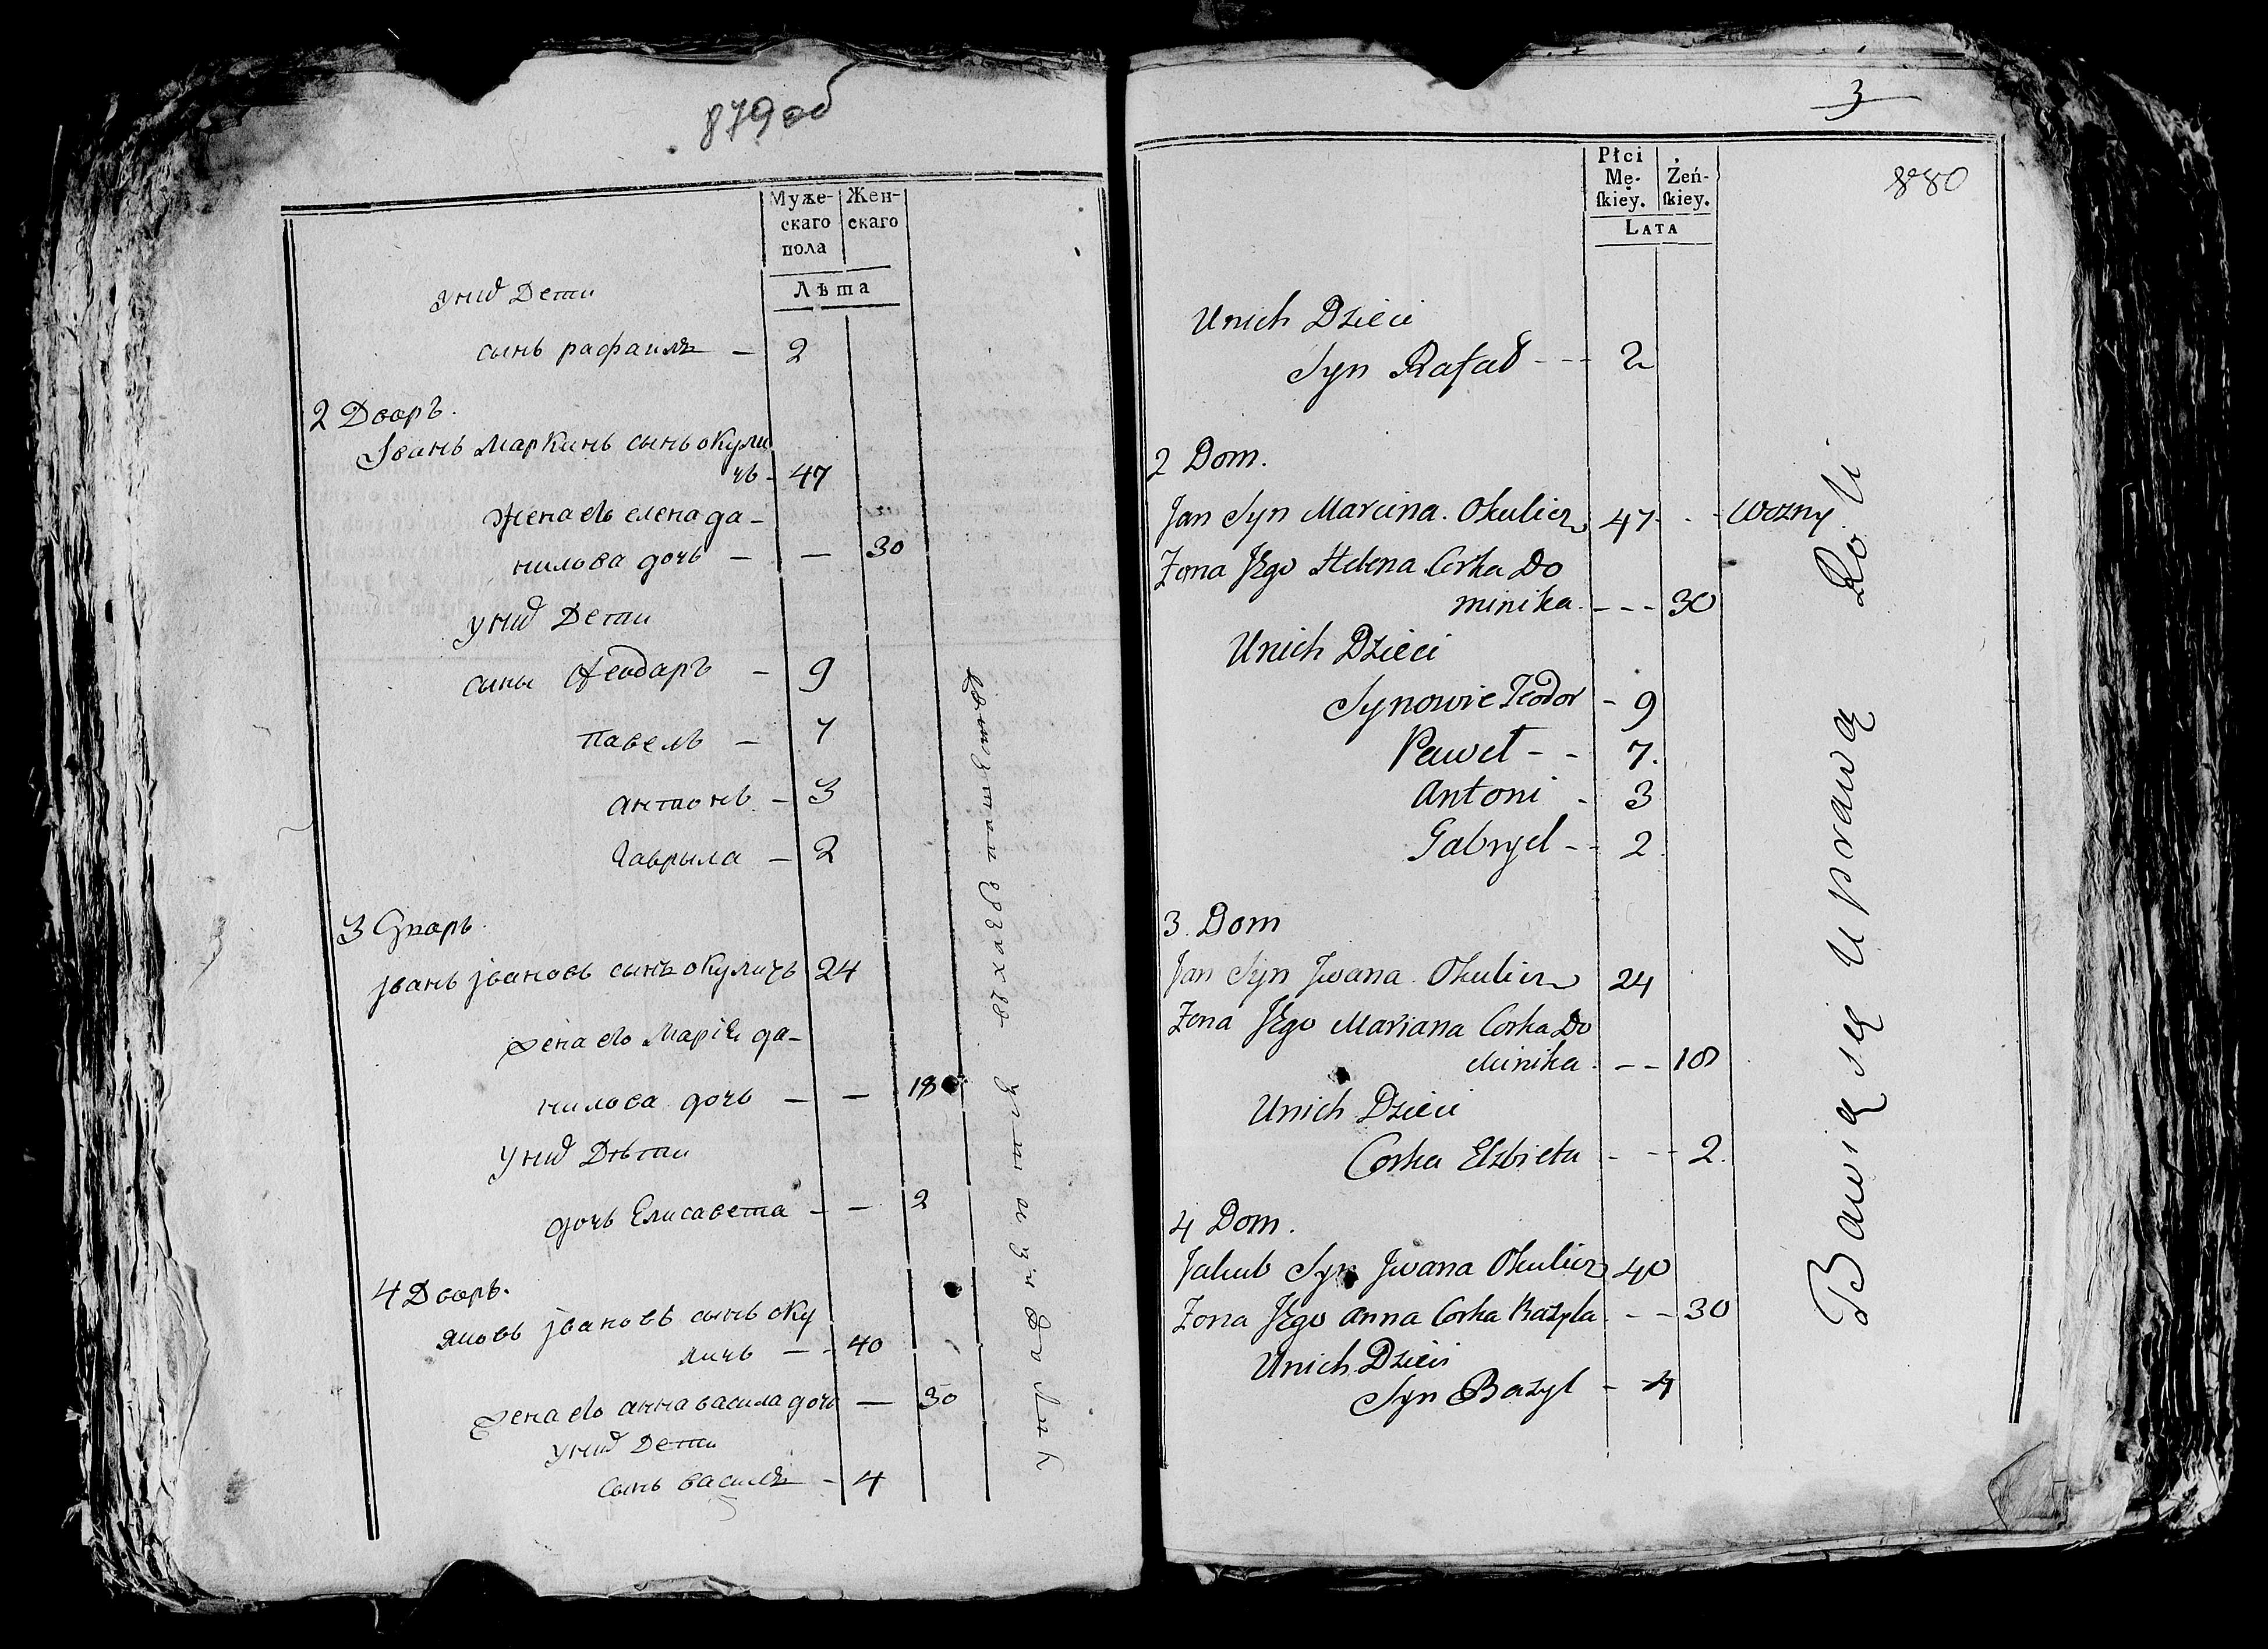 879 об
Муже-
скаго
пола
Жен-
скаго
Лѣта
уних Дети
сынъ рафаилъ — 2
2 Дворъ.
Іванъ Маркинъ сынъ окули
чъ - 47
жена его елена да-
нилова дочь — — 30
уних Дети
сыны Ѳеодаръ - 9
павелъ — 7
антонъ — 3
Гаврыла — 2
3 Дворъ.
јванъ јвановъ сынъ окуличъ 24
жена его Марія да-
нилова дочь — — 18
Уних Дѣти
дочь Елисавета - — 2
4 Дворъ.
яковъ јвановъ сынъ оку
личъ — - 40
жена его анна васила дочь — 30
уних Дети
Сынъ василъ - 4
3
880
Płci
Mę-
ſkiey.
Żeń-
ſkiey.
LATA
Unich Dzieci
Syn Rafał - - - 2
2 Dom.
Jan Syn Marcina. Okulicz 47 - - Wozny.
Zona Jego Helena Corka Do
minika. - - - 30
Unich Dzieci
Synowie Teodor - 9
Paweł - - 7.
Antoni - 3
Gabryel - - 2
3. Dom
Jan Syn Jwana Okulicz 24
Zona Jego Mariana Corka Do
Minika. - - 18
Unich Dzieci
Corka Elzbieta - - - 2.
4 Dom.
Jakub Syn Jwana Okulicz 40
Zona Jego Anna Corka Bazyla. - - 30
Unich Dzieci
Syn Bazyl - 4
Bawią się Uprawą Roli